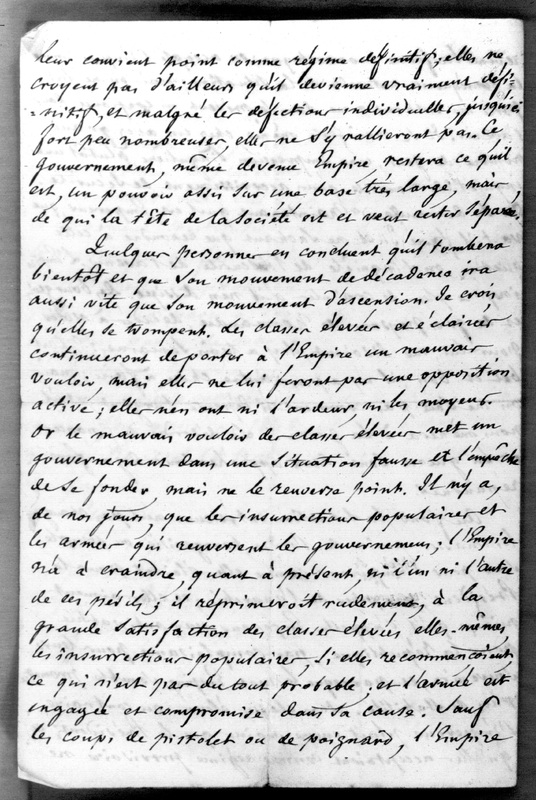 leur convient point comme régime définitif; elles ne
croyent pas d'ailleurs qu'il devienne vraiment défi-
-nitif, et malgré les défections individuelles, jusqu'ici
fort peu nombreuses, elles ne s'y rallieront pas. Ce
gouvernement, même devenu Empire restera ce qu'il
est, un pouvoir assis sur une base très large, mais
de qui la tête de la société est et veut rester séparée.
Quelques personnes en concluent qu'il tombera
bientôt et que son mouvement de décadence ira
aussi vite que son mouvement d'ascension. Je crois
qu'elles se trompent. Les classes élevées et éclairées
continueront de porter à l'Empire un mauvais
vouloir, mais elles ne lui feront pas une opposition
active; elles n'en ont ni l'ardeur, ni les moyens.
Or le mauvais vouloir des classes élevées met un
gouvernement dans une situation fausse et l'empêche
de se fonder, mais ne le renverse point. Il n'y a,
de nos jours, que les insurrections populaires et
les armées qui renversent les gouvernemens; l'Empire
n'a à craindre, quant à présent, ni l'un ni l'autre
de ces périls; il réprimeroit rudement, à la
grande satisfaction des classes élevées elles-mêmes,
les insurrections populaires, si elles recommençoient,
ce qui n'est pas du tout probable; et l'armée est
engagée et compromise dans sa cause. Sauf
les coups de pistolet ou de poignard, l'Empire